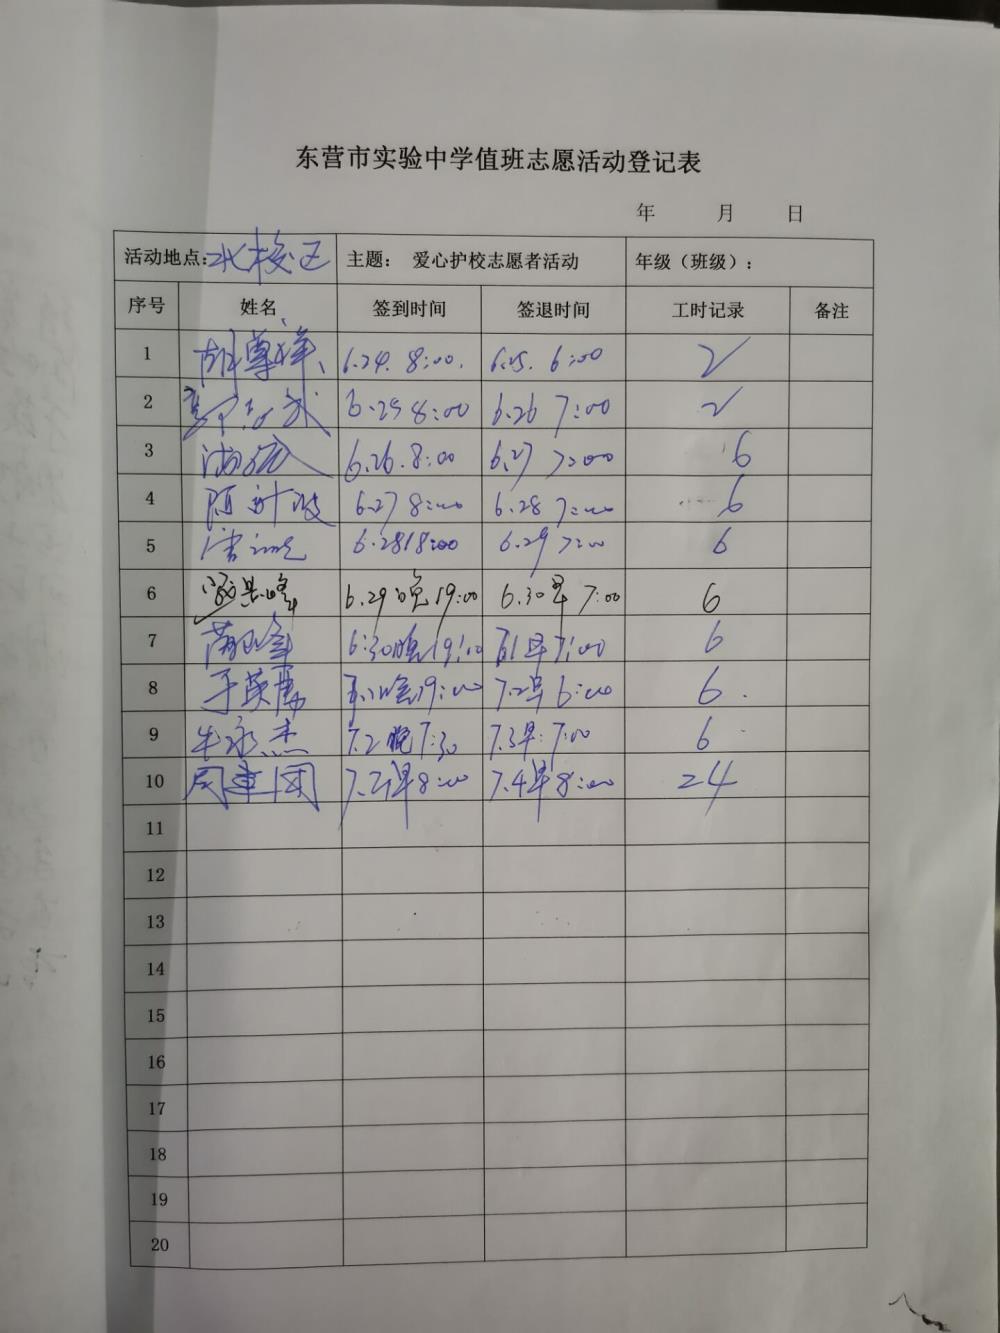 东营市实验中学值班志愿活动登记表
年 月 日
活动地点:北校区 主题: 爱心护校志愿者活动 年级（班级）:
序号 姓名 签到时间 签退时间 工时记录 备注
1 胡尊祥 6.24. 8:00. 6.25. 6:00 2
2 6.25 8:00 6.26 7:00 2
3 6.26. 8:00 6.27 7:00 6
4 6.27 8:00 6.28 7:00 6
5 6.28 8:00 6.29 7:00 6
6 6.29晚19:00 6.30早 7:00 6
7 6:30晚19:00 7.1早7:00 6
8 7.1晚19:00 7.2早6:00 6.
9 牛永杰 7.2晚7:30 7.3早7:00 6
10 周建国 早8:00 7.4早8:00 24
11
12
13
14
15
16
17
18
19
20